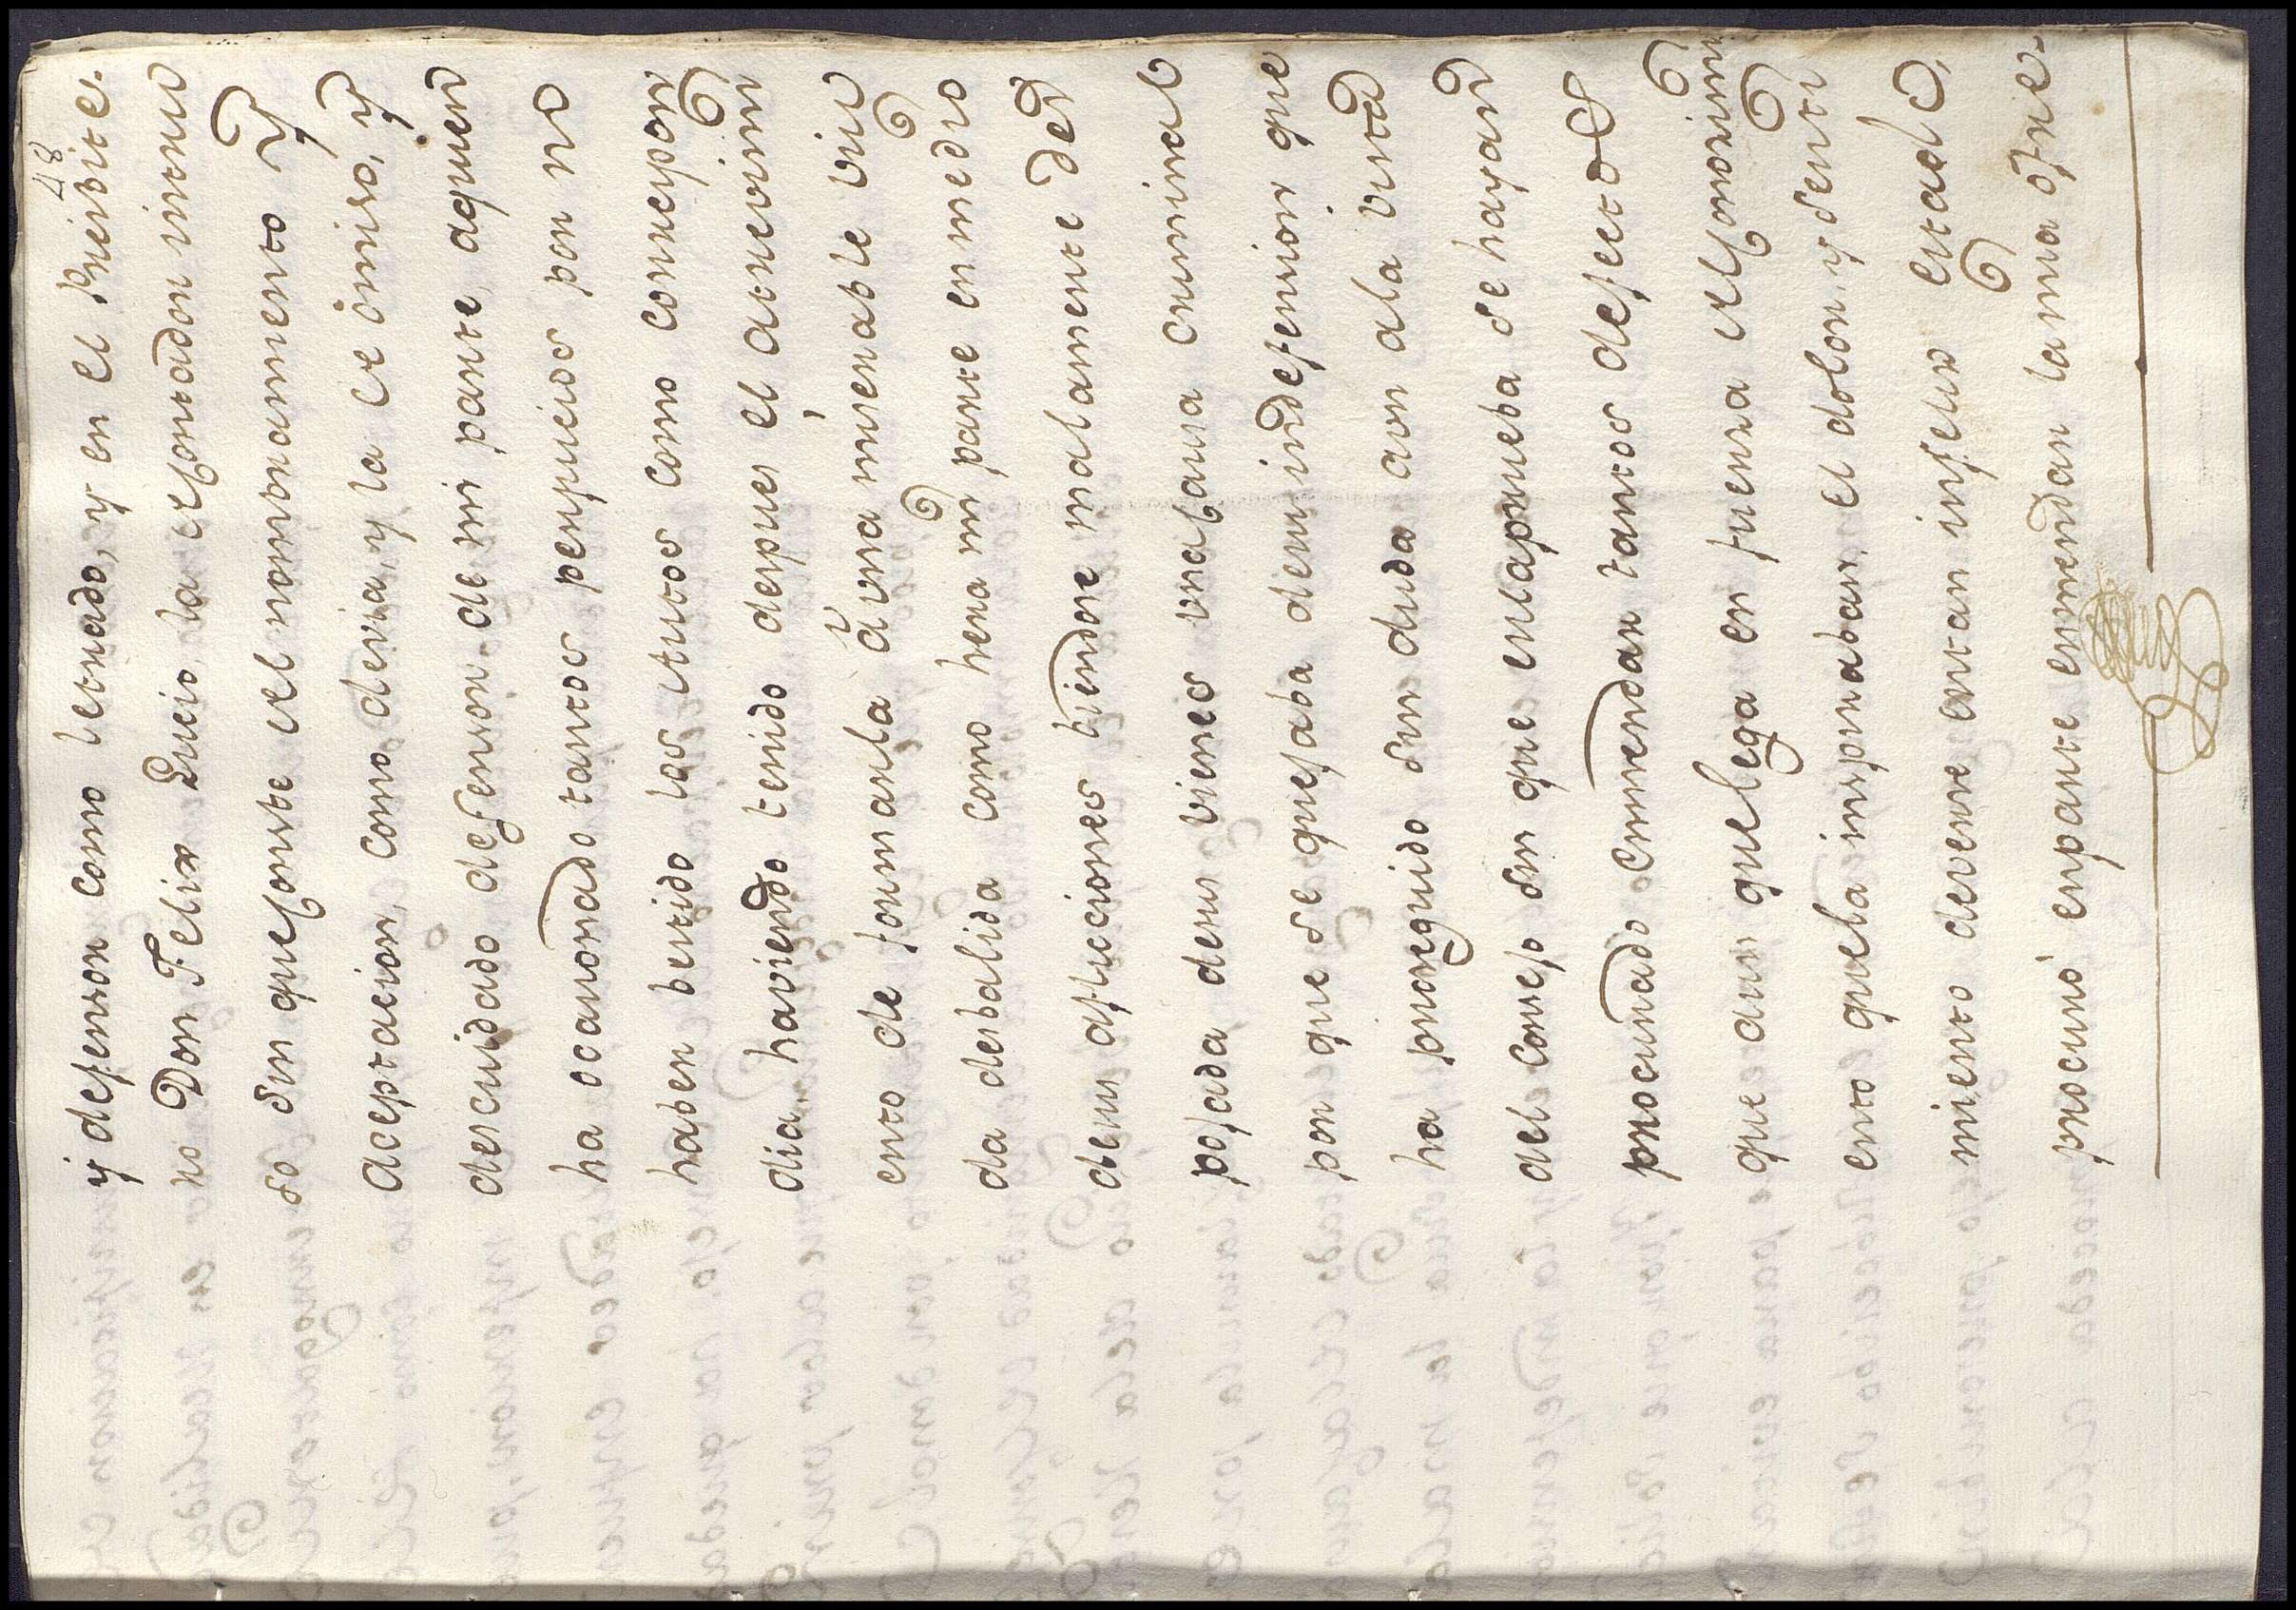 48
y defensor como letrado, y en el Preivite-
ro Don Felix Lucio la de Contador interino
so sin que Conste del nombramiento y
aceptacion, como devia, y la de omiso, y
descuidado defensor de mi parte, aquien
ha ocacionado tantos perjuicios por no
haber bertido los autos como correspon
dia, haviendo tenido despues el atrevim
ento de formarla á una miserable viu
da desbalida como hera mi parte en medio
de sus aflicciones biendose malamente des
pojada de sus vienes una Causa criminal
por que se quejaba de su indefension que
ha proseguido sin duda aun ala vista
del consejo sin que enlaprueba se hayan
procurado enmendar tantos defectos
que aun que llega en fuerza del Conosim
ento que la inspiraban, el dolor, y senti
miento deverse en tan infeliz estado,
procuró enparte enmendar la mia ofre-